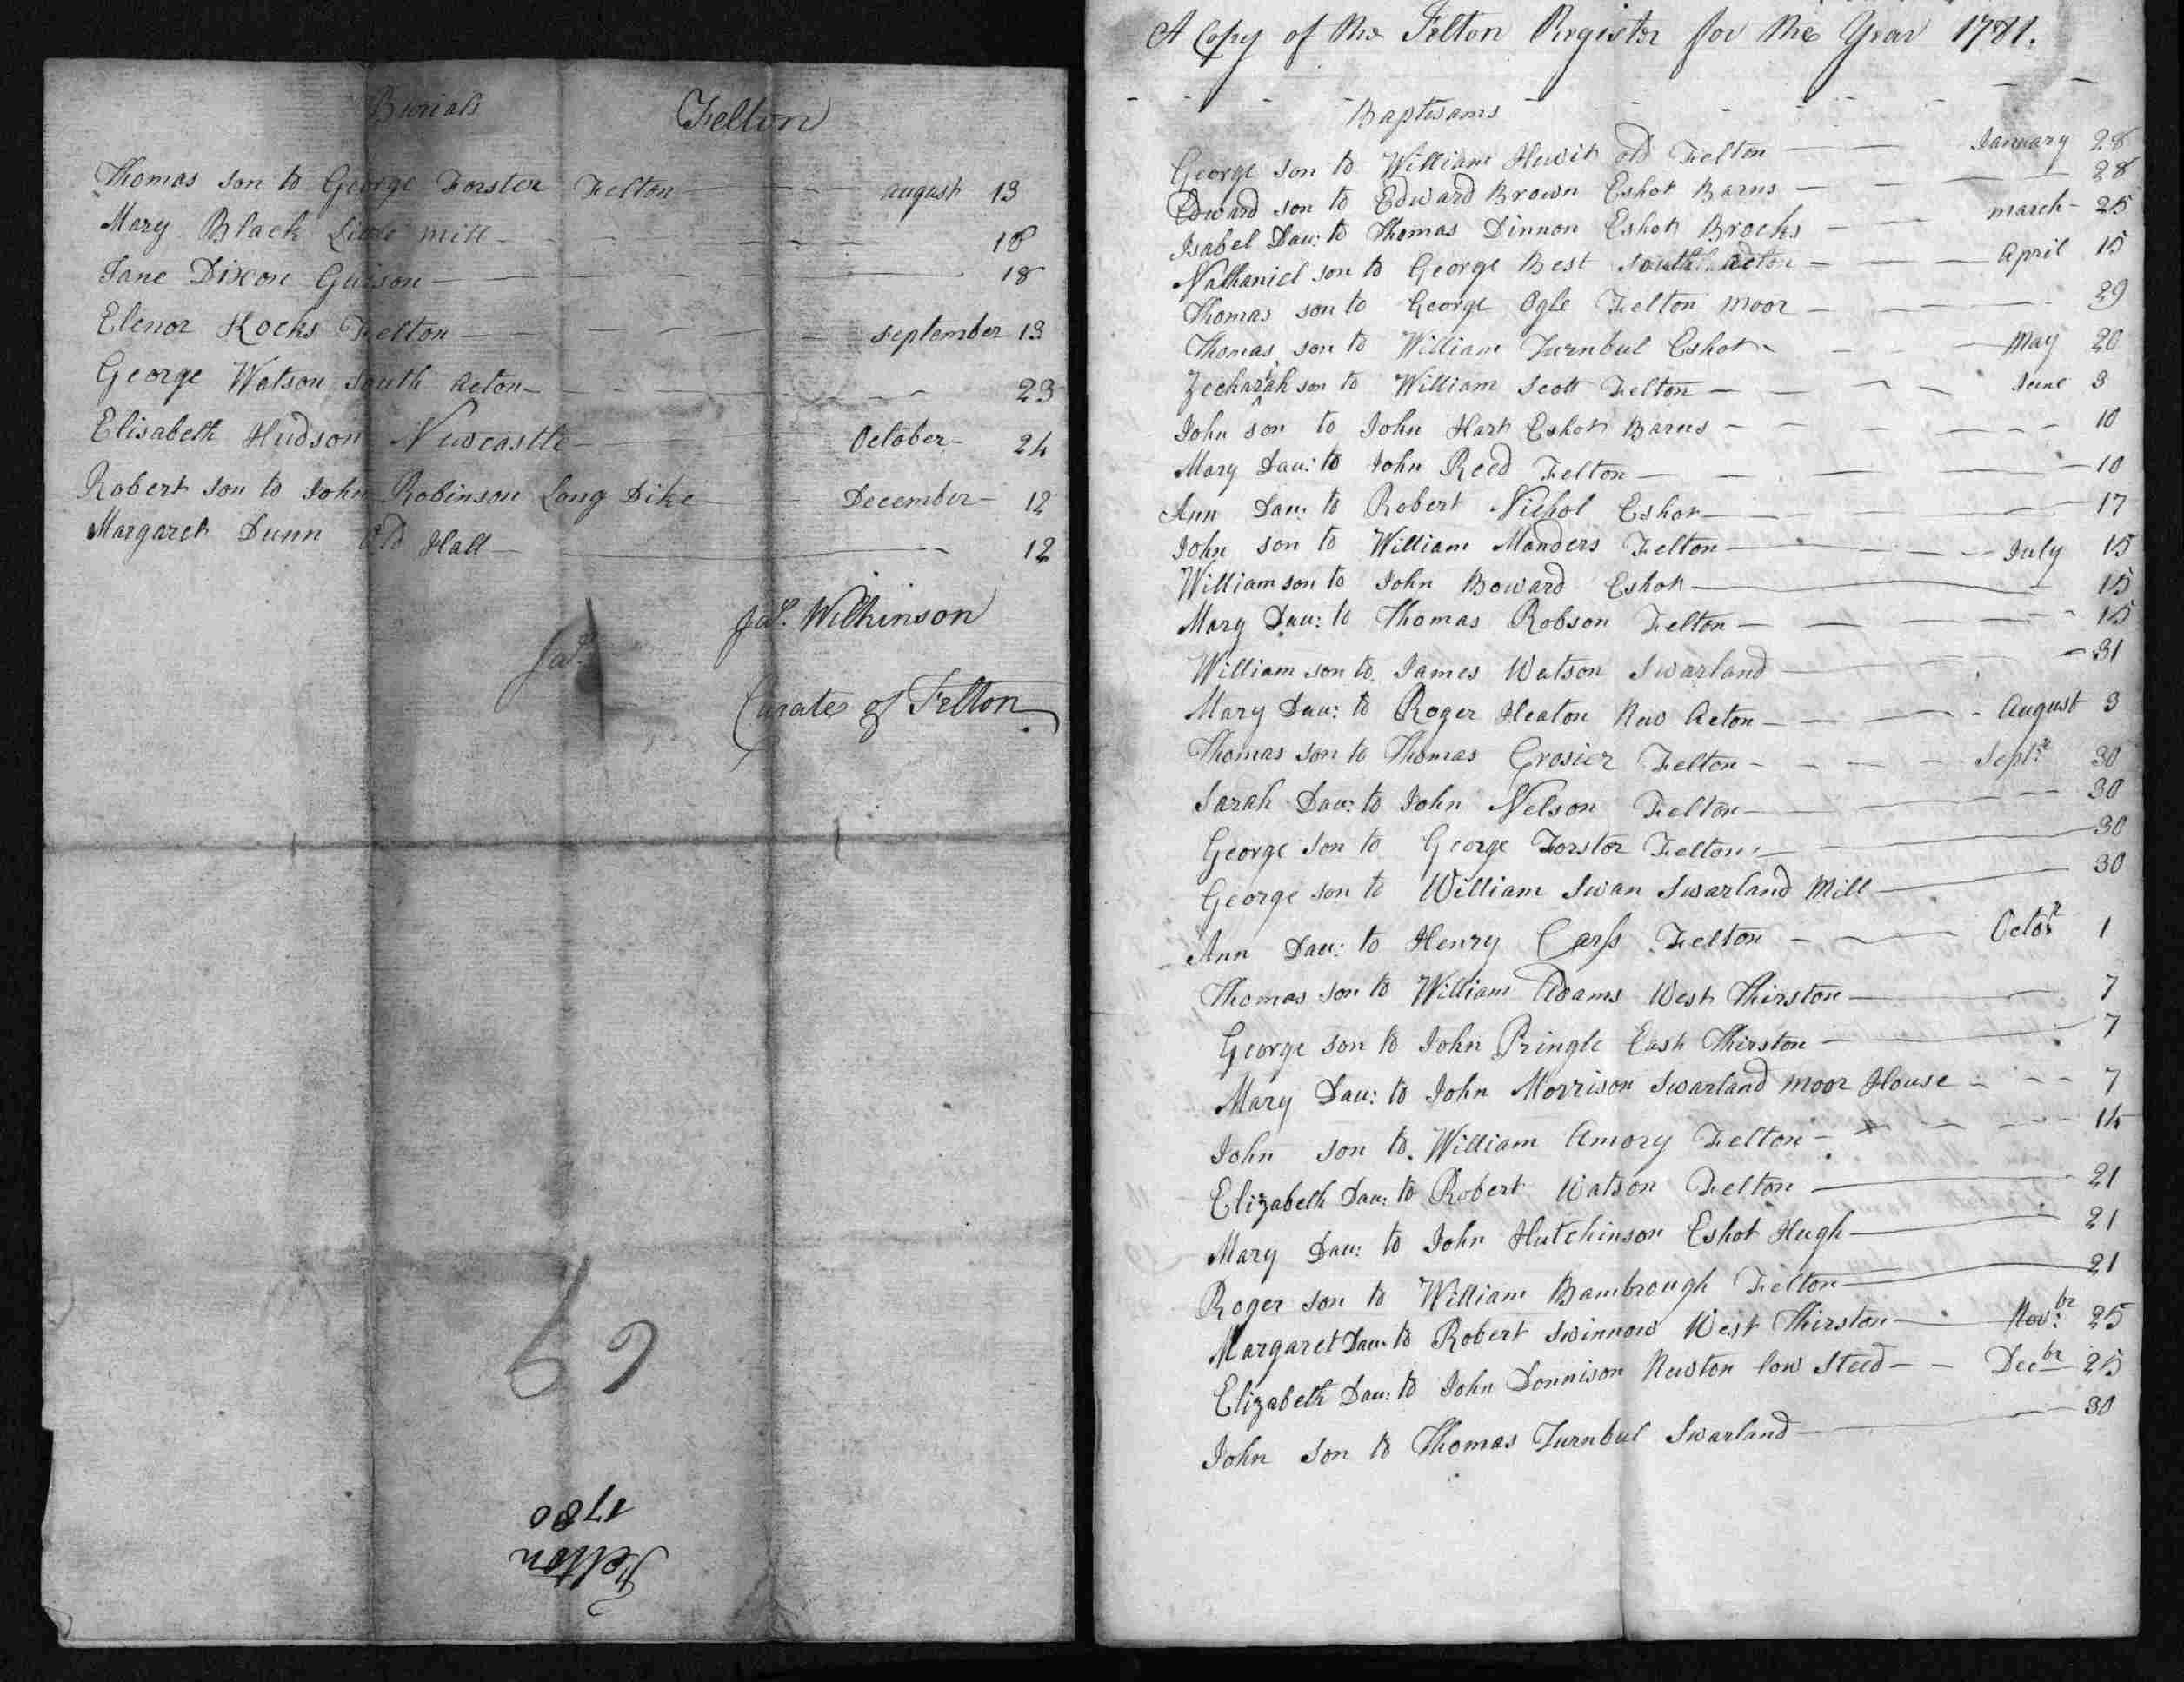 Burials Felton
Thomas son to George Forster Felton august 13
Mary Black Little mill 18
Jane Dixon Guison 18
Elenor Kocks Felton September 13
George Watson South Acton 23
Elisabeth Hudson Newcastle October 24
Robert son to John Robinson Long Dike December 12
Margaret Dunn Old Hall 12
Jas. Wilkinson
Jas.
Curate of Felton
67
Felton
1780
A Copy of the Felton Register for the Year 1781.
Baptisams
George son to William Hewit old Felton January 28
Edward son to Edward Brown Eshot Barns 28
Isabel Dau: to Thomas Dinnon Eshot Brocks march 25
Nathaniel son to George Best South Acton April 15
Thomas son to George Ogle Felton moor 29
Thomas son to William Turnbul Eshot May 20
Zechariah son to William Scott Felton June 3
John son to John Hart Eshot Barns 10
Mary Dau: to John Reed Felton 10
Ann Dau: to Robert Nichol Eshot 17
John son to William Manders Felton July 15
William son to John Boward Eshot 15
Mary Dau: to Thomas Robson Felton 15
William son to James Watson Swarland 31
Mary Dau: to Roger Heaton New Acton August 3
Thomas son to Thomas Crosier Felton Septr. 30
Sarah Dau: to John Nelson Felton 30
George son to George Forstor Felton 30
George son to William Swan Swarland Mill 30
Ann Dau: to Henry Carss Felton Octor. 1
Thomas son to William Adams West Thirston 7
George son to John Pringle East Thirston 7
Mary Dau: to John Morrison Swarland moor House 7
John son to William Amory Felton 14
Elizabeth Dau: to Robert Watson Felton 21
Mary Dau: to John Hutchinson Eshot Hugh 21
Roger son to William Bambrough Felton 21
Margaret Dau: to Robert Swinnow West Thirston Nov:br 25
Elizabeth Dau: to John Donnison Newton low Steed Decbr 25
John Son to Thomas Turnbul Swarland 30